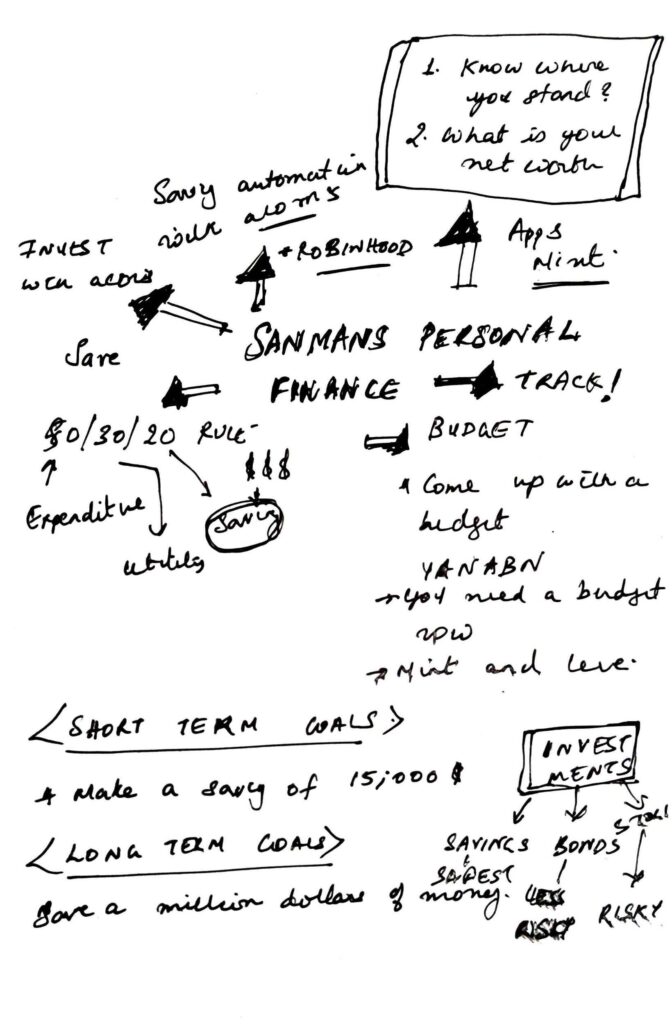 1. Know where
you stand?
2. What is your
net worth
Savy automation
with acorns
+ ROBINHOOD
Apps
Mint.
INVEST
with acorns
Save
SANMANS PERSONAL
FINANCE
TRACK!
50/30/20 RULE
$$$
Expenditure
Savig
BUDGET
Come up with a
budget
YANABN
→ you need a budget
now
→ Mint and
<SHORT TERM GOALS>
Make a savig of 15,000 $
<LONG TERM GOALS>
Save a million dollars of money.
INVEST
MENTS
SAVINGS BONDS
LESS
RISKY
RISKY